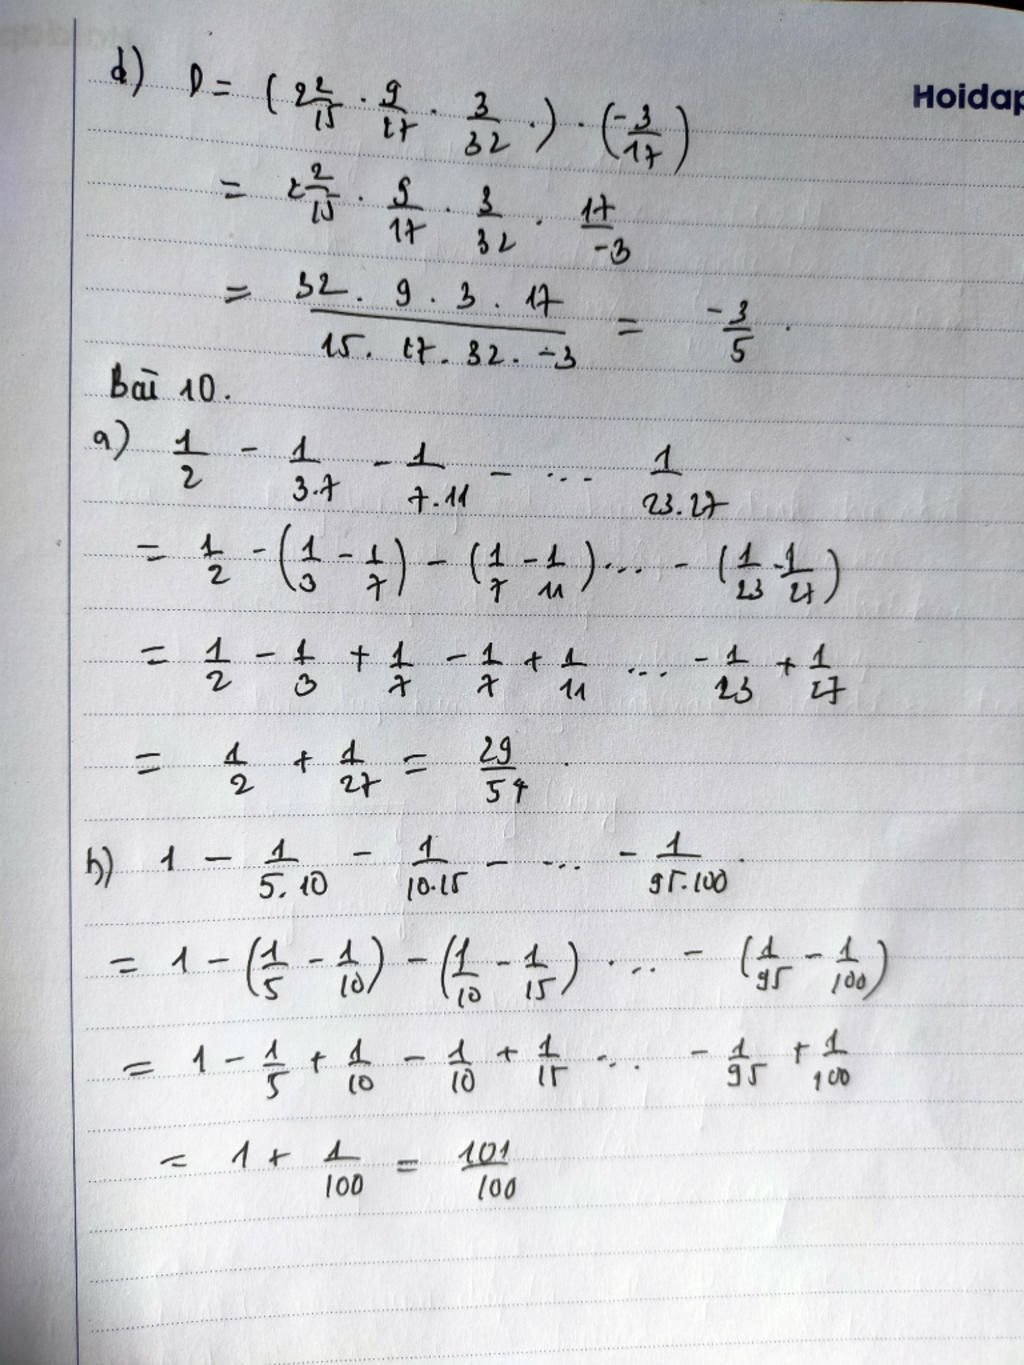 Hoidap
d) D = (2 2/15 . 9/17 . 3/32 .) . (-3/17)
= 2 2/15 . 9/17 . 3/32 . 17/-3
= 32 . 9 . 3 . 17 / 15 . 17 . 32 . -3 = -3/5 .
Bài 10.
a) 1/2 - 1/3.7 - 1/7.11 - ... 1/23.27
= 1/2 - (1/3 - 1/7) - (1/7 - 1/11) ... - (1/23 - 1/27)
= 1/2 - 1/3 + 1/7 - 1/7 + 1/11 ... - 1/23 + 1/27
= 1/2 + 1/27 = 29/54 .
b) 1 - 1/5.10 - 1/10.15 - ... - 1/95.100 .
= 1 - (1/5 - 1/10) - (1/10 - 1/15) ... - (1/95 - 1/100)
= 1 - 1/5 + 1/10 - 1/10 + 1/15 ... - 1/95 + 1/100
= 1 + 1/100 = 101/100